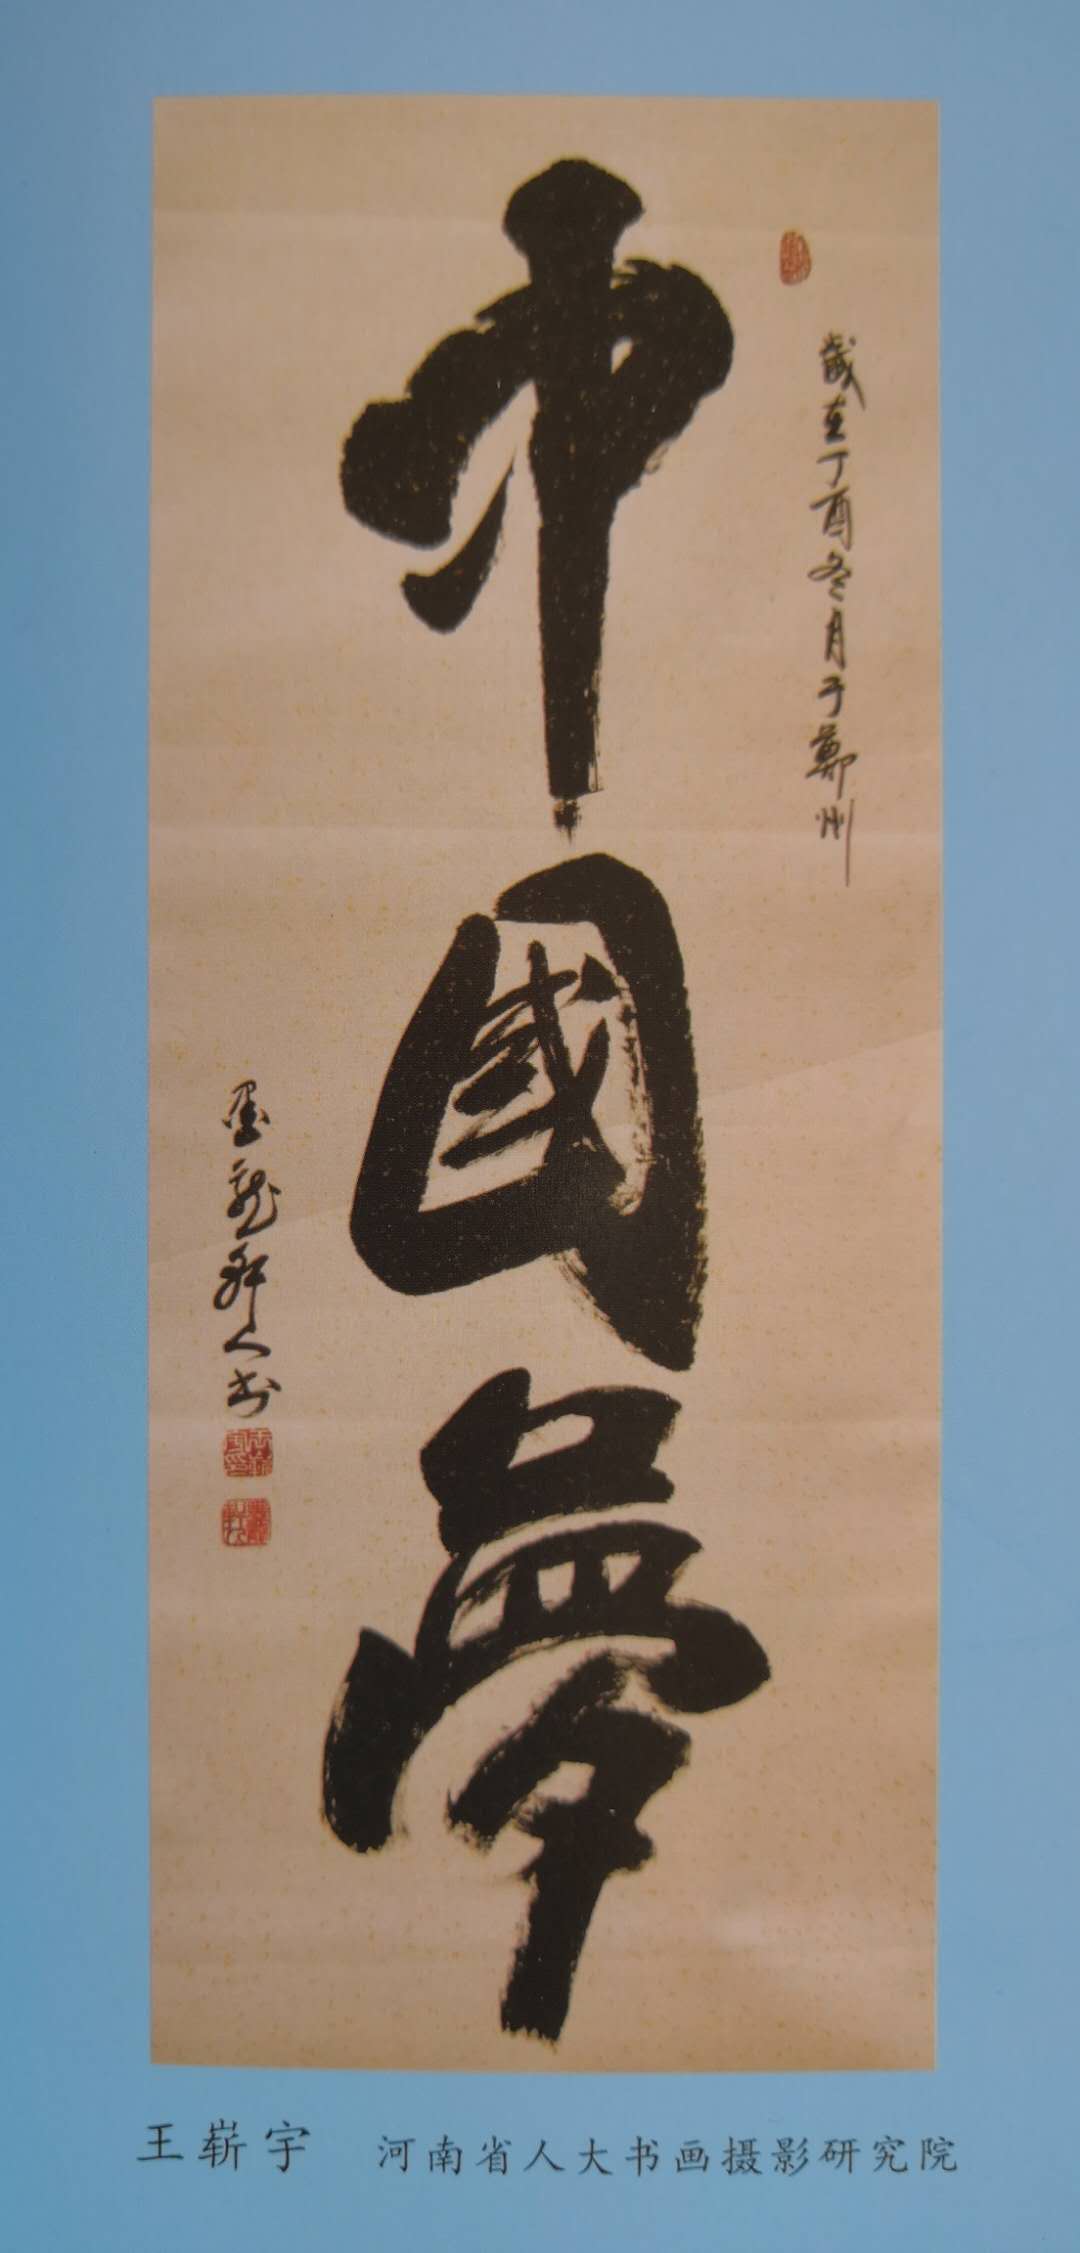 歲在丁酉冬月于鄭州
中國夢
墨龍舜人书
王崭宇 河南省人大书画摄影研究院